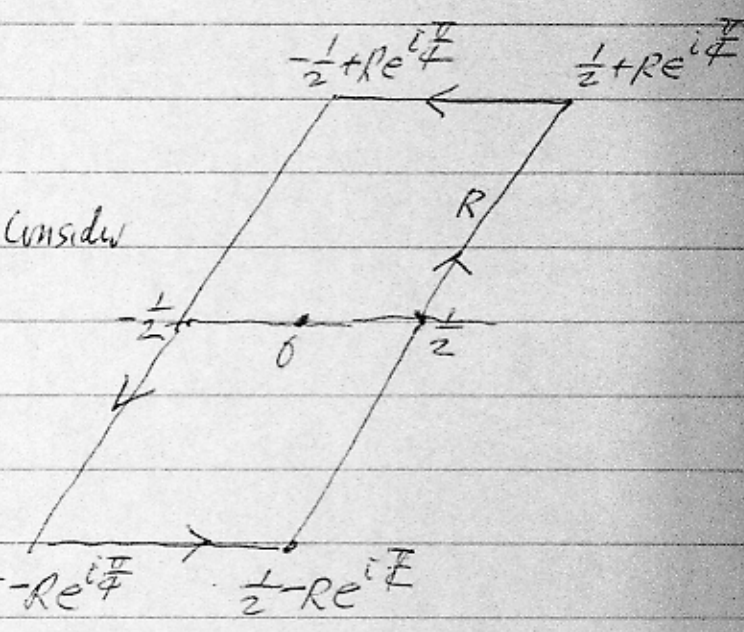 -1/2+Re^{iπ/4} 1/2+Re^{iπ/4}
R
Consider
-1/2 0 1/2
-Re^{iπ/4} 1/2-Re^{iπ/4}